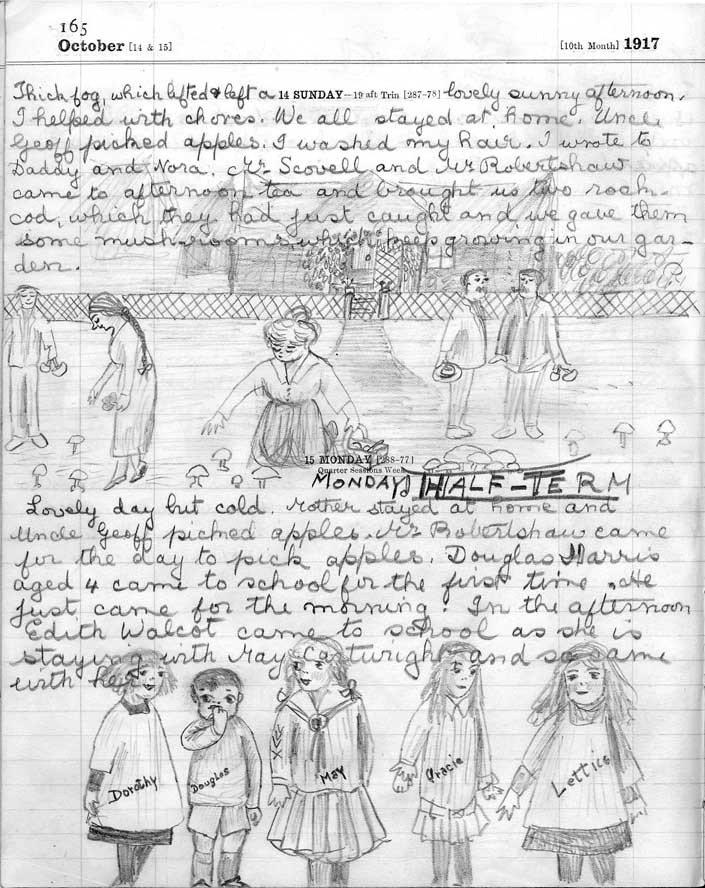 165
October [14 & 15] [10th Month] 1917
Thick fog, which lifted & left a 14 SUNDAY—19 aft Trin [287-78] lovely sunny afternoon.
I helped with chores. We all stayed at home. Uncle
Geoff picked apples. I washed my hair. I wrote to
Daddy and Nora. Mr Scovell and Mr Robertshaw
came to afternoon tea and brought us two rock-
cod, which they had just caught and we gave them
some mushrooms which keep growing in our gar-
den.
15 MONDAY [288-77]
Quarter Sessions Week
MONDAY HALF-TERM
Lovely day but cold. Mother stayed at home and
Uncle Geoff picked apples. Mr Robertshaw came
for the day to pick apples. Douglas Harris
aged 4 came to school for the first time. He
just came for the morning. In the afternoon
Edith Walcot came to school as she is
staying with May Cartwright and so came
with her.
Dorothy Douglas May Gracie Lettice